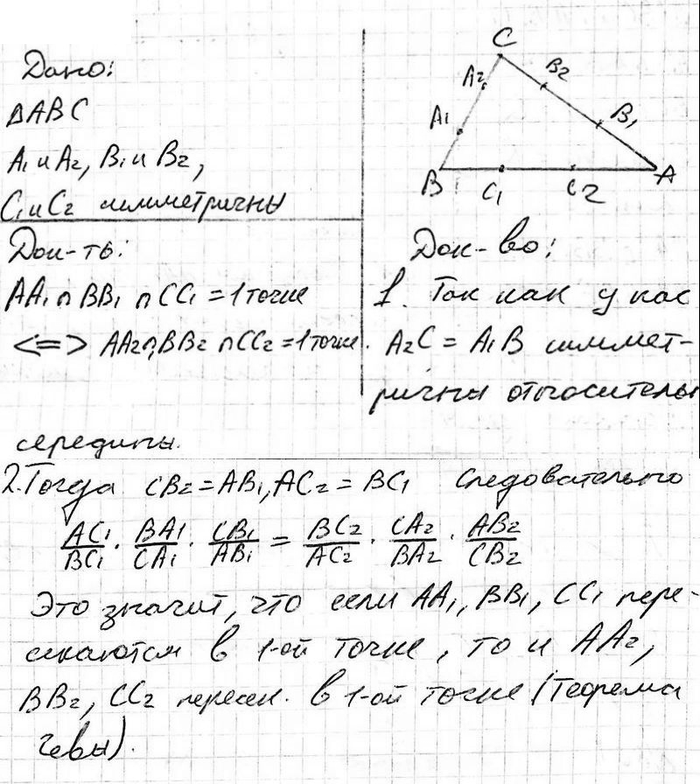 Дано:
ΔABC
A₁ и A₂, B₁ и B₂,
C₁ и C₂ симметричны
Док-ть:
AA₁ ∩ BB₁ ∩ CC₁ = 1 точке
<=> AA₂ ∩ BB₂ ∩ CC₂ = 1 точке.
C
A₂
B₂
A₁
B₁
B
C₁
C₂
A
Док-во:
1. Так как у нас
A₂C = A₁B симмет-
ричны относительно
середины.
2. Тогда CB₂ = AB₁, AC₂ = BC₁ следовательно
AC₁/BC₁ · BA₁/CA₁ · CB₁/AB₁ = BC₂/AC₂ · CA₂/BA₂ · AB₂/CB₂
Это значит, что если AA₁, BB₁, CC₁ пере-
секаются в 1-ой точке, то и AA₂,
BB₂, CC₂ пересек. в 1-ой точке (Теорема
Чевы).